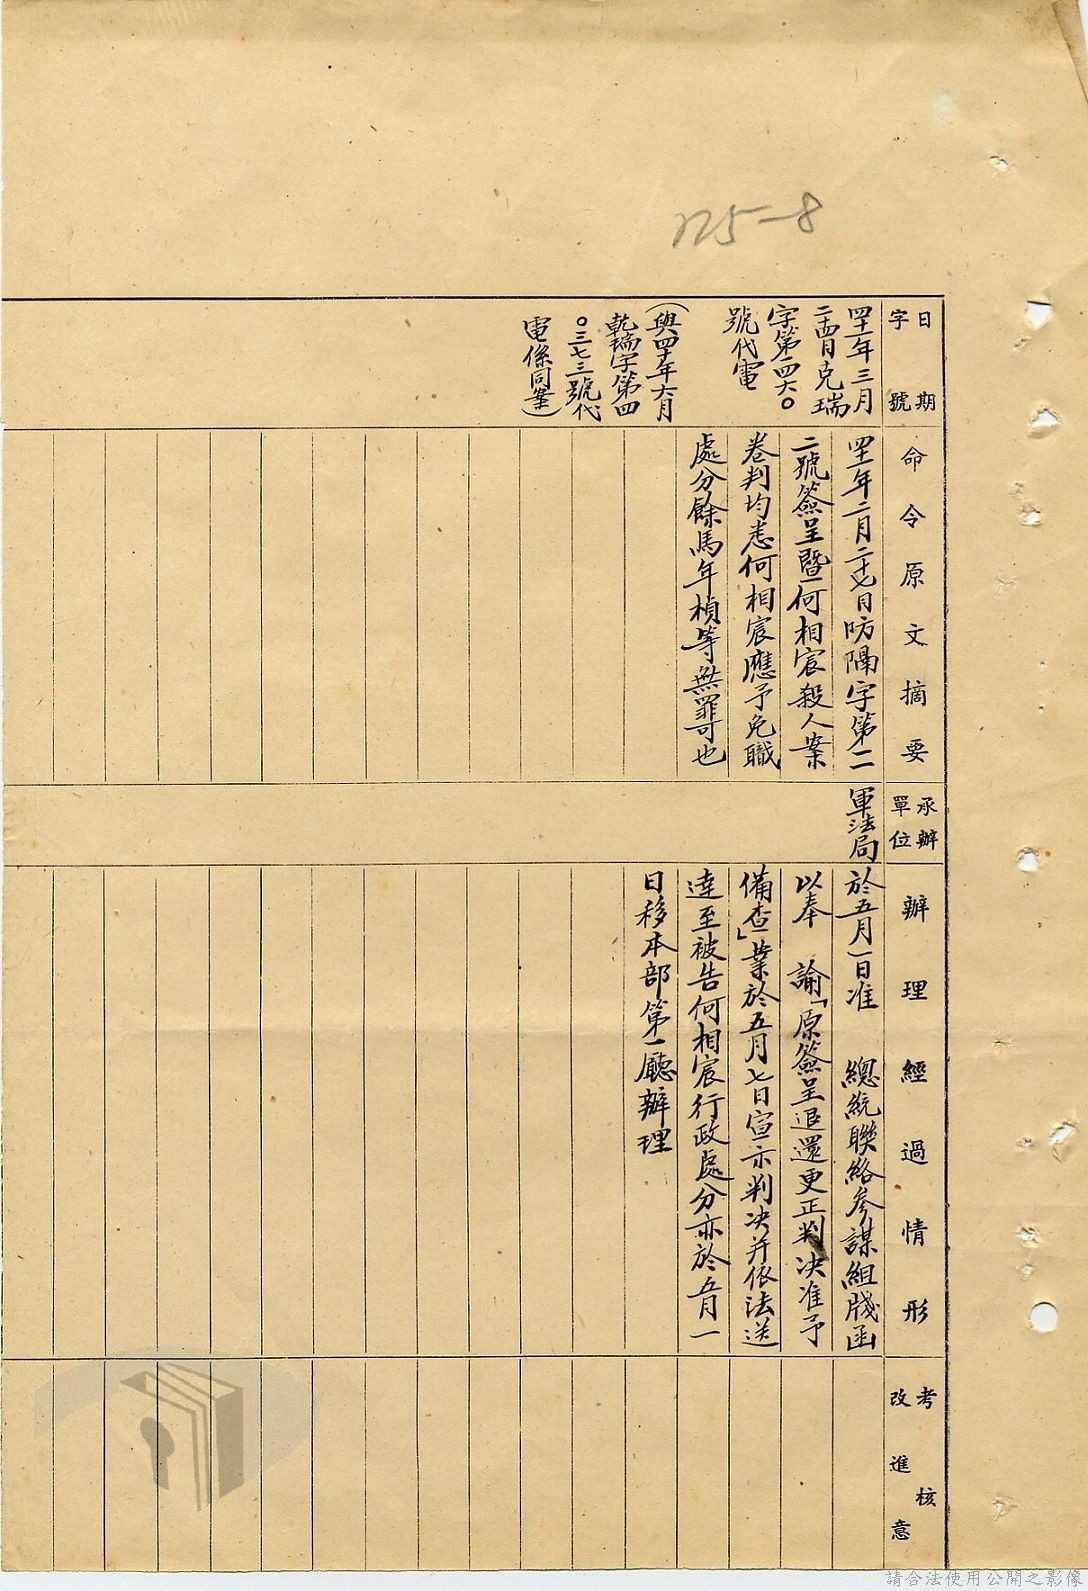 125-8
日期
字號
命令原文摘要
承辦
單位
辦理經過情形
考核
改進意
四十一年三月
二十四日克瑞
字第一四六〇
號代電
(與四十年六月
乾瑞字第四
〇三七三號代
電係同案)
四十一年二月二十七日防隔字第二
二號簽呈暨何相宸殺人案
卷判均悉何相宸應予免職
處分餘馬年楨等無罪可也
軍法局
於五月一日准 總統聯絡參謀組牋函
以奉 諭「原簽呈退還更正判決准予
備查」業於五月七日宣示判決并依法送
達至被告何相宸行政處分亦於五月一
日移本部第一廳辦理
請合法使用公開之影像